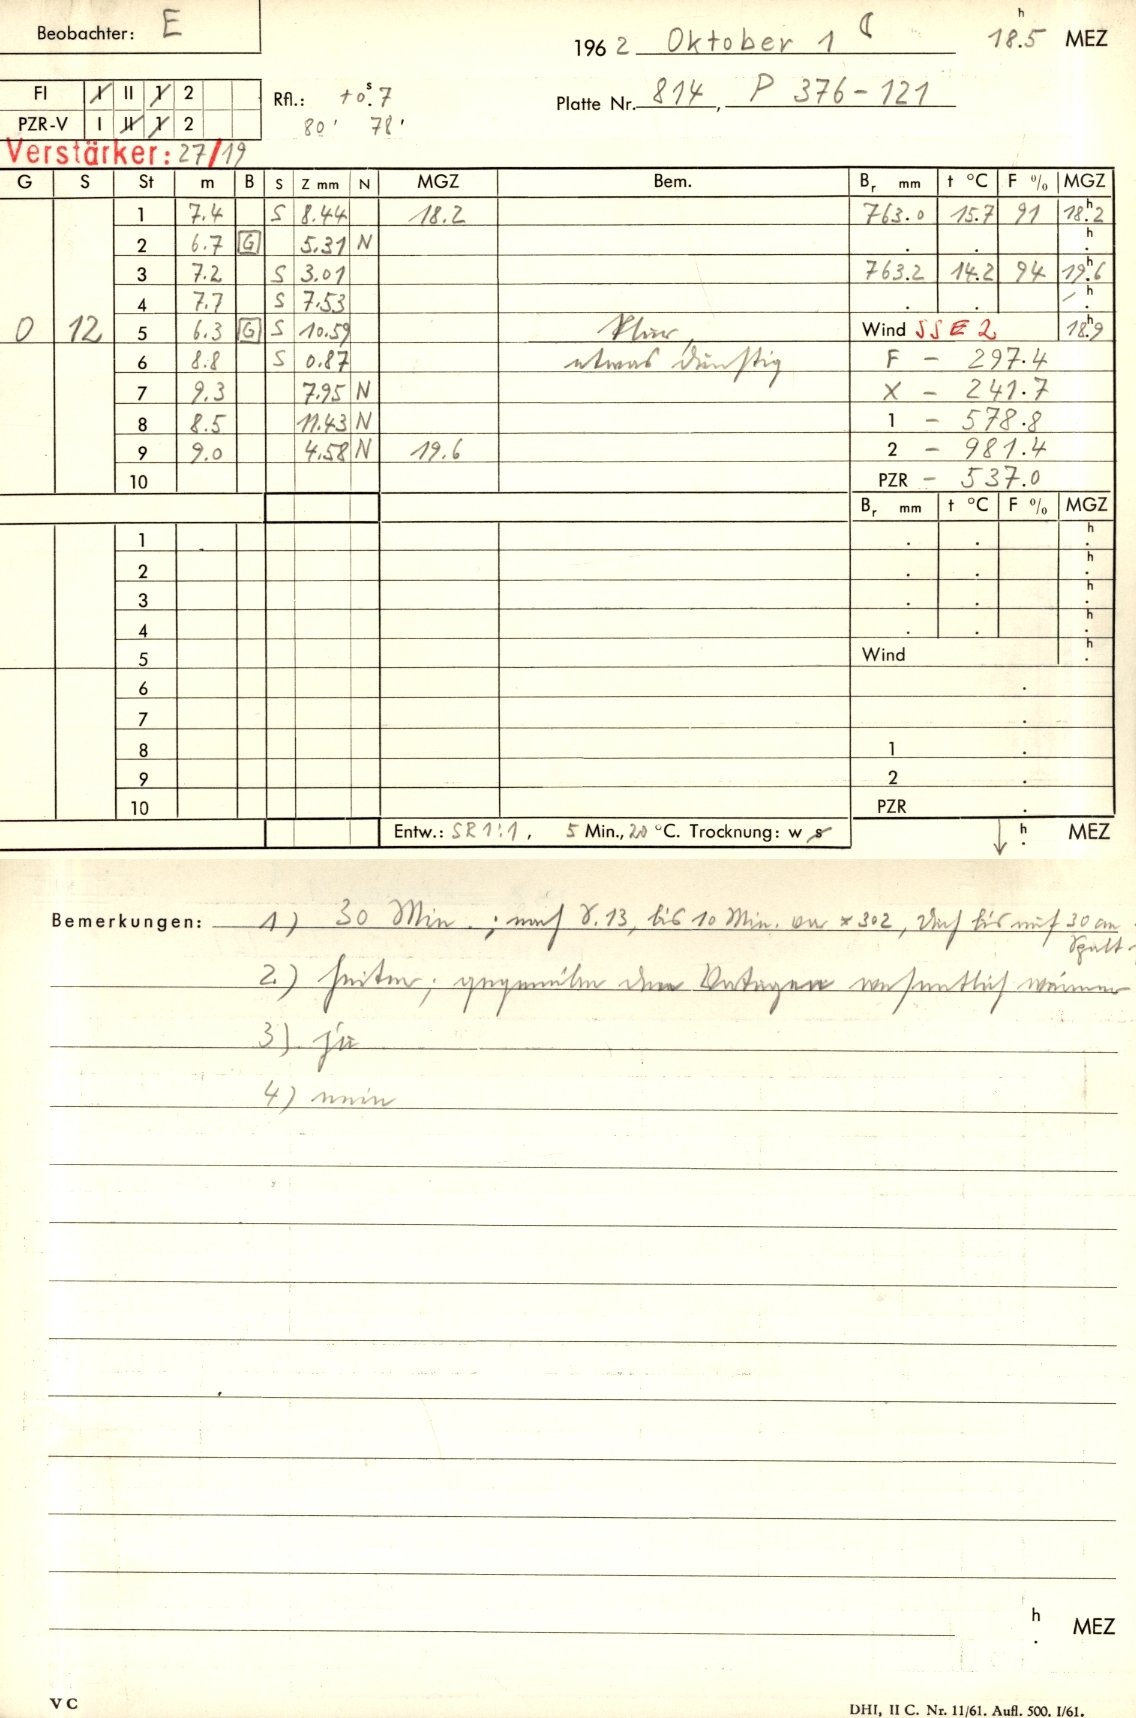 Beobachter: E
1962 Oktober 1 ☾ 18.5 h MEZ
FI I II 1 2
Rfl.: +0.7 s
Platte Nr. 814, P 376-121
PZR-V I II 1 2
80' 78'
Verstärker: 27/19
G S St m B S Z mm N MGZ Bem. Br mm t °C F % MGZ
1 7.4 S 8.44 18.2 763.0 15.7 91 18.2 h
2 6.7 G 5.31 N . . h .
3 7.2 S 3.01 763.2 14.2 94 19.6 h
4 7.7 S 7.53 . . h .
0 12 5 6.3 G S 10.59 Klar, Wind SSE 2 18.9 h
6 8.8 S 0.87 etwas dunstig F - 297.4
7 9.3 7.95 N X - 241.7
8 8.5 11.43 N 1 - 578.8
9 9.0 4.58 N 19.6 2 - 981.4
10 PZR - 537.0
Br mm t °C F % MGZ
1 . . h .
2 . . h .
3 . . h .
4 . . h .
5 Wind h .
6 .
7 .
8 1 .
9 2 .
10 PZR .
Entw.: SR 1:1, 5 Min., 20 °C. Trocknung: w s ↓ h . MEZ
Bemerkungen: 1) 30 Min.; nach 13, bis 10 Min. vor * 302, Dach bis auf 30 cm
Spalt
2.) heiter; gegenüber den Vortagen wesentlich wärmer
3) ja
4) nein
h . MEZ
V C
DHI, II C. Nr. 11/61. Aufl. 500. I/61.